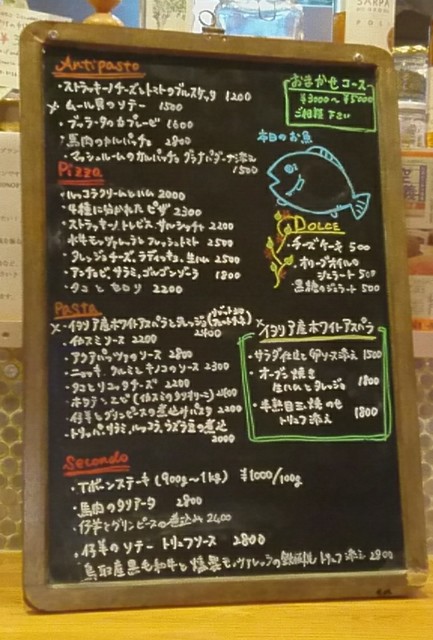 Antipasto
・ストラッキーノチーズとトマトのブルスケッタ 1200
× ムール貝のソテー 1500
・ブッラータのカプレーゼ 1600
・馬肉のカルパッチョ 2800
・マッシュルームのカルパッチョ グラナパダーノ添え 1500
おまかせコース
¥3000〜¥5000
ご相談下さい
本日のお魚
Pizza
・ルッコラクリームとハム 2000
・4種に分かれたピザ 2300
・ストラッキーノ トレビス サルシッチャ 2200
・水牛モッツァレッラとフレッシュトマト 2500
・タレッジョチーズ、ラディッキオ、生ハム 2500
・アンチョビ、サラミ、ゴルゴンゾーラ 1800
・タコとセロリ 2200
DOLCE
・チーズケーキ 500
・オリーブオイルのジェラート 500
・黒糖のジェラート 500
Pasta
×・イタリア産ホワイトアスパラとタレッジョ 2400
・イカスミソース 2200
・アクアパッツァのソース 2800
・ニョッキ クルミとキノコのソース 2300
・タコとリコッタチーズ 2200
・ホタテ、エビ (イカスミのタリオリーニ) 2400
・仔羊とグリンピースの煮込みパスタ 2200
・トリッパ、サラミ、ルッコラ、ウズラ豆の煮込 2000
×イタリア産ホワイトアスパラ
・サラダ仕立と卵ソース添え 1500
・オーブン焼き
生ハムとタレッジョ 1800
・半熟目玉焼のせ
トリュフ添え 1800
Secondo
・Tボーンステーキ (900g〜1kg) ¥1000/100g
・馬肉のタリアータ 2800
・仔羊とグリンピースの煮込み 2400
・仔羊のソテー トリュフソース 2800
・鳥取産黒毛和牛と燻製モッツァレッラの鉄板焼 トリュフ添え 2800